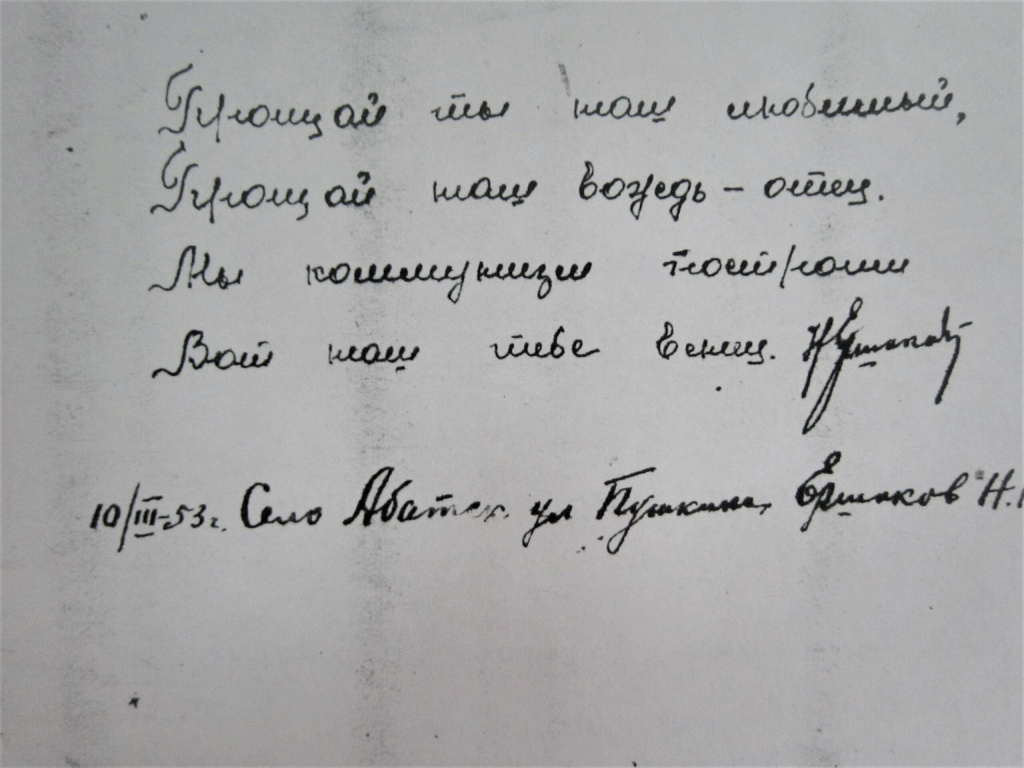 Прощай ты наш любимый,
Прощай наш вождь – отец.
Мы коммунизм построим
Вот наш тебе венец. НЕршаков
10/III-53г. Село Абатск ул Пушкина, Ершаков Н.